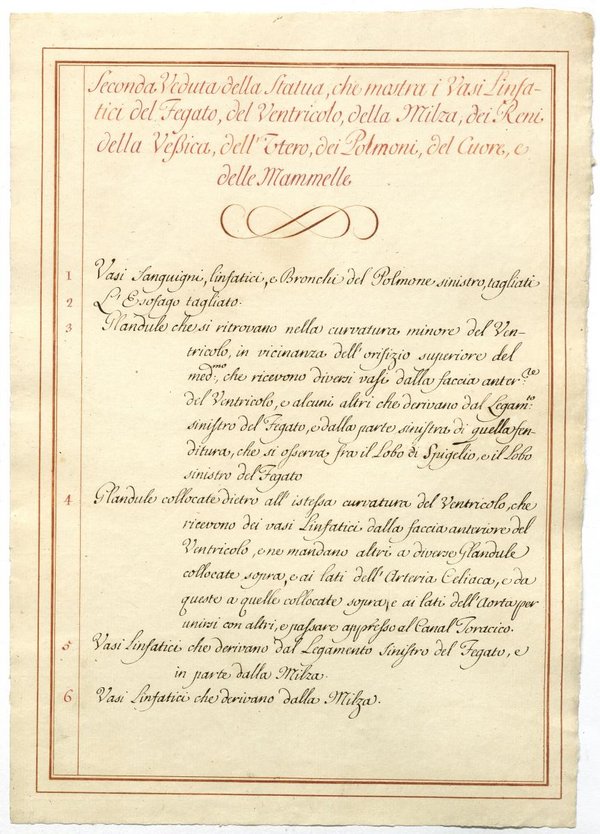 Seconda Veduta della Statua, che mostra i Vasi Linfa-
tici del Fegato, del Ventricolo, della Milza, dei Reni
della Veßica, dell'Utero, dei Polmoni, del Cuore, e
delle Mammelle
1 Vasi Sanguigni, linfatici, e Bronchi del Polmone sinistro, tagliati
2 L'Esofago tagliato.
3 Glandule che si ritrovano nella curvatura minore del Ven-
tricolo, in vicinanza dell'orifizio superiore del
med:mo, che ricevono diversi vasi dalla faccia anter:re
del Ventricolo, e alcuni altri che derivano dal Legam:to
sinistro del Fegato, e dalla parte sinistra di quella fen-
ditura, che si osserva fra il Lobo di Spigelio, e il Lobo
sinistro del Fegato
4 Glandule collocate dietro all'istessa curvatura del Ventricolo, che
ricevono dei vasi Linfatici dalla faccia anteriore del
Ventricolo, e ne mandano altri a diverse Glandule
collocate sopra, e ai lati dell'Arteria Celiaca, e da
queste a quelle collocate sopra, e ai lati dell'Aorta per
unirsi con altri, e passare appresso al Canal Toracico.
5 Vasi Linfatici che derivano dal Legamento Sinistro del Fegato, e
in parte dalla Milza.
6 Vasi Linfatici che derivano dalla Milza.